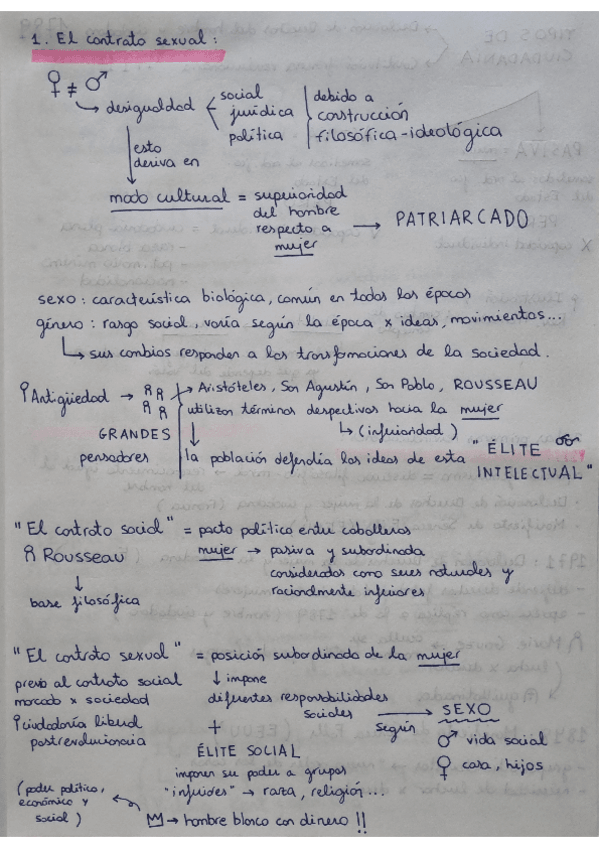 1. El contrato sexual:
♀ ≠ ♂
↳ desigualdad < social jurídica política | debido a construcción filosófica-ideológica
↓ esto deriva en
modo cultural = superioridad del hombre respecto a mujer → PATRIARCADO
sexo: característica biológica, común en todas las épocas
género: rasgo social, varía según la época x ideas, movimientos...
↳ sus cambios responden a las transfomaciones de la sociedad.
Antigüedad → GRANDES pensadores
→ Aristóteles, San Agustín, San Pablo, ROUSSEAU
utilizan términos despectivos hacia la mujer
↳ (inferioridad)
↓ la población defendía las ideas de esta "ÉLITE INTELECTUAL"
"El contrato social" = pacto político entre caballeros
Rousseau
↓
base filosófica
mujer → pasiva y subordinada
consideradas como seres naturales y
racionalmente inferiores
"El contrato sexual" = posición subordinada de la mujer
previo al contrato social
marcado x sociedad
ciudadanía liberal
postrevolucionaria
↓ impone
diferentes responsabilidades
sociales → según SEXO
♂ vida social
♀ casa, hijos
+
ÉLITE SOCIAL
imponen su poder a grupos
"inferiores" → raza, religión...
→ hombre blanco con dinero !!
(poder político,
económico y
social)